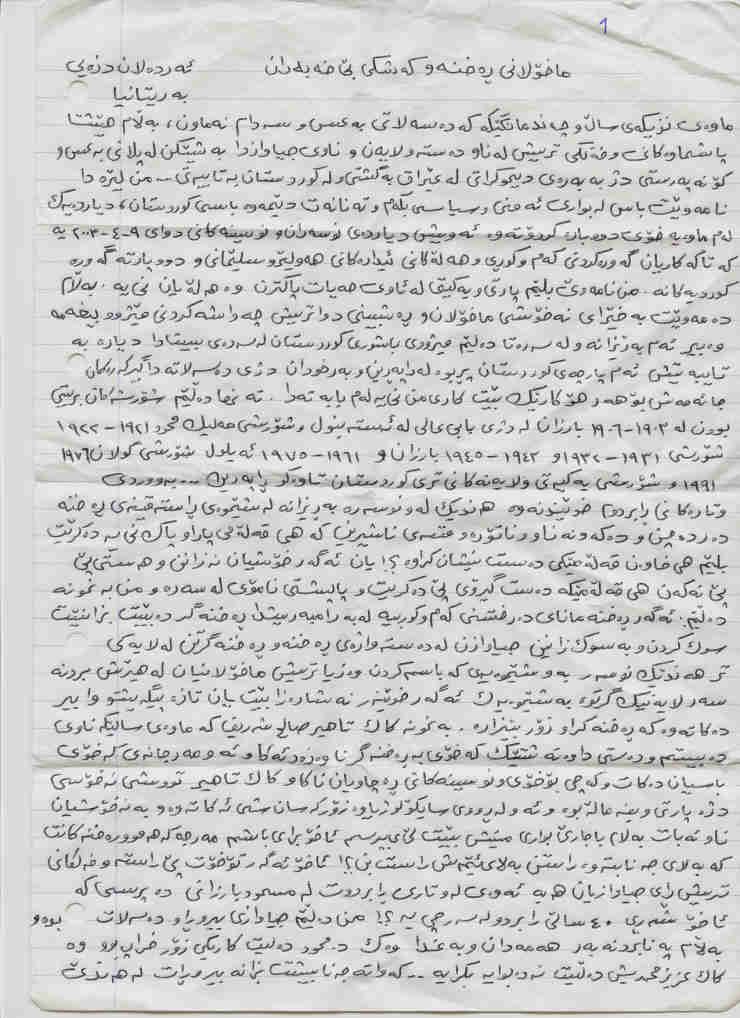 1
ماخۆلانی ڕەخنە و کەشکی بێ خەبەران ئەردەلان دزەیی
بەریتانیا
ماوەی نزیکەی ساڵ و چەند مانگێکە کە دەسەلاتی بەعس و سەدام نەماون، بەڵام هێشتا
پاشماوەکانی و خەڵکی تریش لەناو دەستە و لایەن و ناوی جیاوازدا بەشێکن لە پلانی بەعس و
کۆنەپەرستی دژ بە بەرەی دیموکراتی لە عێراق بەگشتی و لە کوردستان بەتایبەتی -- من لێرەدا
نامەوێت باس لە بواری ئەمنی و سیاسی بکەم و تەنانەت دێمەوە باسی کوردستان، دیاردەیەک
لەم ماوەیە خۆی دووبارە کردۆتەوە ئەویش دیاردەی نوسەران و نوسینەکانی دوای ٩-٤-٢٠٠٣ یە
کە تاکە کاریان گەورەکردنی کەم و کوڕی و هەڵەکانی ئیدارەکانی هەولێر و سلێمانی و دوو پارتە گەورە
کوردیەکانە. من نامەوێ بڵێم پارتی و یەکێتی لە ئاوی حەیات پاکترن و هەڵەیان نی یە. بەڵام
دەمەوێت بە خێرای نەخۆشی ماخۆلان و ڕەشبینی دواتریش چەواشەکردنی مێژوو بیخەمە
وەبیر ئەم بەڕێزانە و لە سەرەتا دەڵێم مێژووی باشوری کوردستان لە سەدەی بیستدا دیارە بە
تایبەتیش ئەم پارچەی کوردستان پڕ بوە لە ڕاپەڕین و بەرخودان دژی دەسەلاتە داگیرکەرەکان
جا ئەمەش بۆ هەر هۆکارێک بێت کاری من نی یە لەم بابەتەدا. تەنها دەڵێم شۆڕشەکان بریتی
بوون لە ١٩٠٣-١٩٠٦ بارزان لە دژی بابی عالی لە ئەستەنبول و شۆڕشی مەلیک محمود ١٩٢١-١٩٢٢
شۆڕشی ١٩٣١-١٩٣٢ و ١٩٤٣-١٩٤٥ بارزان و ١٩٦١-١٩٧٥ ئەیلول شۆڕشی گولان ١٩٧٦
١٩٩١ و شۆڕشی یەکێتی و لایەنەکانی تری کوردستان تاوەکو ڕاپەڕین --- بە ووردی
وتارەکانی ڕابردوم خوێنەوە هەندێک لەو نوسەرە بەڕێزانە لە شێوەی ڕاستەقینەی ڕەخنە
دەردەچن و دەکەونە ناو و ناتۆرە و قسەی ناشیرین کە هی قەڵەمی پاراو پاک نی یە دەکرێت
بڵێم هی خاوەن قەڵەمێکی دەست نیشان کراوە ؟! یان ئەگەر خۆشیان نەزانن و هەستی پێ
پێ نەکەن هی قەڵەمێکە دەست گیرۆی پێ دەکرێت و پاڵپشتی نامۆی لە سەرە و من بە نمونە
دەڵێم. ئەگەر ڕەخنە مانای دەرخستنی کەم و کوڕیە لە بەرامبەریشدا ڕەخنەگر دەبێت بزانێت
سوک کردن و بە سوک زانین جیاوازن لە دەستەواژەی ڕەخنە و ڕەخنەگرتن لە لایەکی
تر هەندێک نوسەر بەو شێوەیەی کە باسم کرد و زیاتریش ماخۆلانیان لە هێرش بردنە
سەر لایەنێک گرتوە بە شێوەیەک ئەگەر خوێنەر نەشارەزا بێت یان تازە پێگەیشتو وا بیر
دەکاتەوە کە ڕەخنە کراو زۆر بێزارە. بە نمونە کاک تاهیر صالح شریف کە ماوەی ساڵێکە ناوی
دەبیستم و دەستی داوەتە شتێک کە خۆی بە ڕەخنەگر ناوزەد ئەکا و ئەو مەرجانەی کە خۆی
باسیان دەکات و کەچی بۆخۆی و نوسینەکانی ڕەچاویان ناکا و کاک تاهیر تووشی نەخۆشی
دژە پارتی و بنەماڵە بوە و ئەو لە ڕووی سایکۆلۆژیاوە زۆر کەسان شی ئەکاتەوە و بە نەخۆشیان
ناو ئەبات بەلام با جارێ بواری منیش بێت لێی بپرسم ئاخۆ بڕای باشم مەرجە کە هەموو ڕەخنەکانت
کە بەلای جەنابتەوە ڕاستن بەلای ئێمەش ڕاست بن؟! ئاخۆ ئەگەر تۆ خۆت پێ ڕاستە و خەڵکانی
تریش ڕای جیاوازیان هەیە ئەوەی لە وتاری ڕابردوت لە مسعود بارزانی دەپرسی کە
ئاخۆ شەڕی ٤٠ ساڵی ڕابردو لەسەر چی یە ؟! من دەڵێم جیاوازی بیروڕا و دەسەلات بوە و
بەڵام پەنابردنە بەر هەمەدان و بەغدا وەک د. محمود دەڵێت کارێکی زۆر خراپ بوو وە
کاک عزیز محمدیش دەڵێت نەدەبوایە بکرایە -- کەواتە جەنابیشت بزانە بیروڕات لە هەندێ